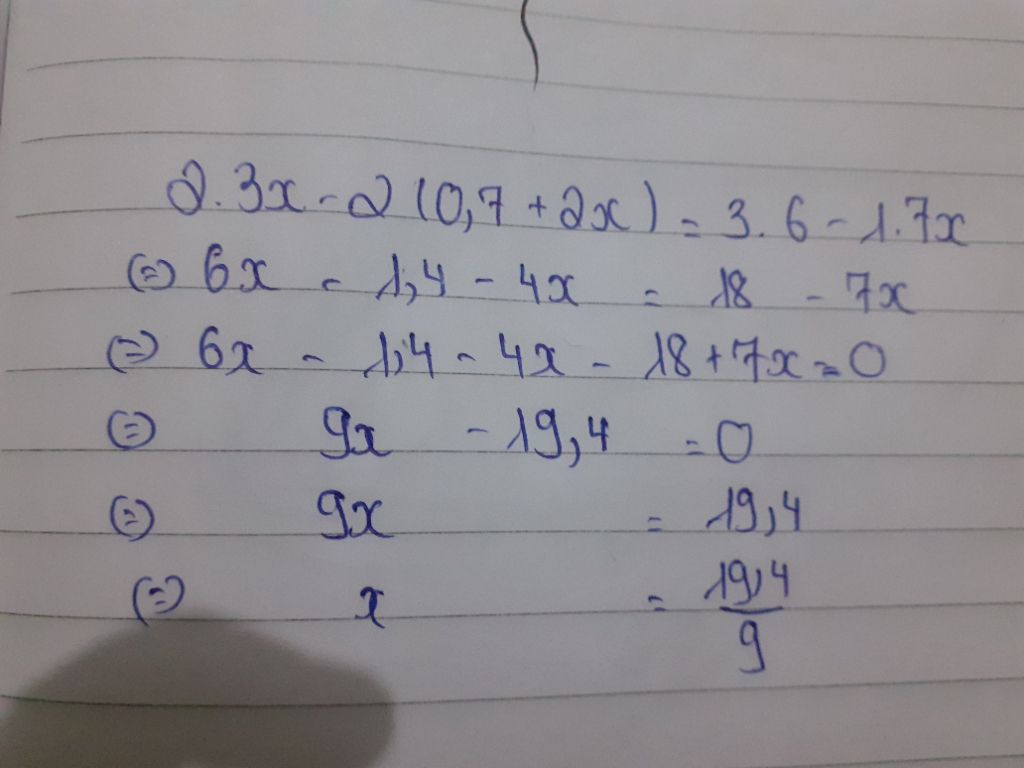 2.3x - 2(0,7 + 2x) = 3.6 - 1.7x
(=) 6x - 1,4 - 4x = 18 - 7x
(=) 6x - 1,4 - 4x - 18 + 7x = 0
(=) 9x - 19,4 = 0
(=) 9x = 19,4
(=) x = 19,4/9